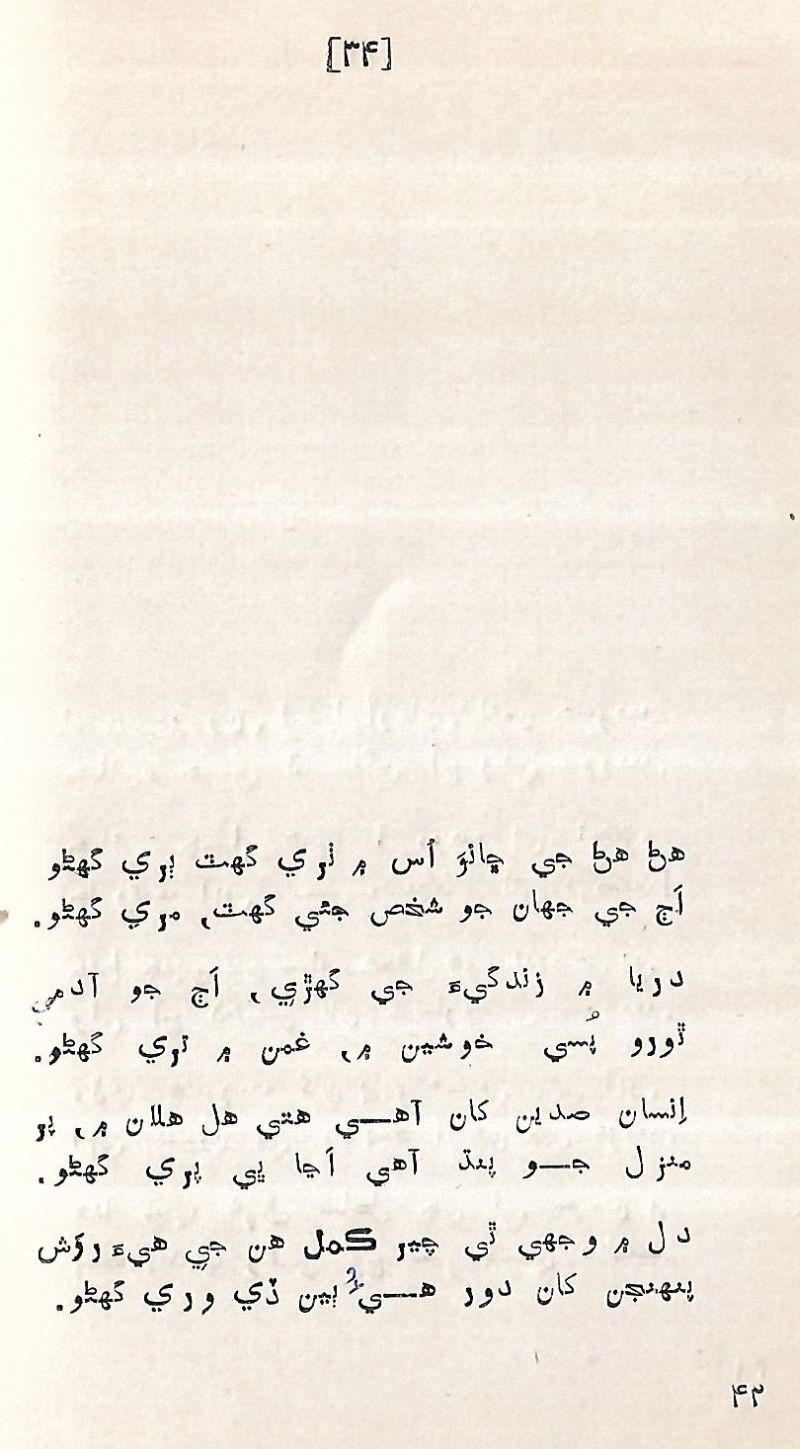 [۳۴]
هڻ هڻ جي ڇانوَ اُس ۾ ٺري گهٽ ٻري گهڻو
اَڄ جي جهان جو شخص جئي گهٽ، مري گهڻو.
دريا ۾ زندگيءَ جي گهڙي، اَڄ جو آدمي
ٿورو پُسي خوشين ۾، غمن ۾ تري گهڻو.
اِنسان صدين کان آهي هتي هل هلان ۾، پر
منزل جو پنڌ آهي اَڃا ڀي پري گهڻو.
دل ۾ وجهي ٿي چير ڪمل هن جي هيءَ روَش
پنهنجن کان دور هي ٻين ڏي وري گهڻو.
۴۲